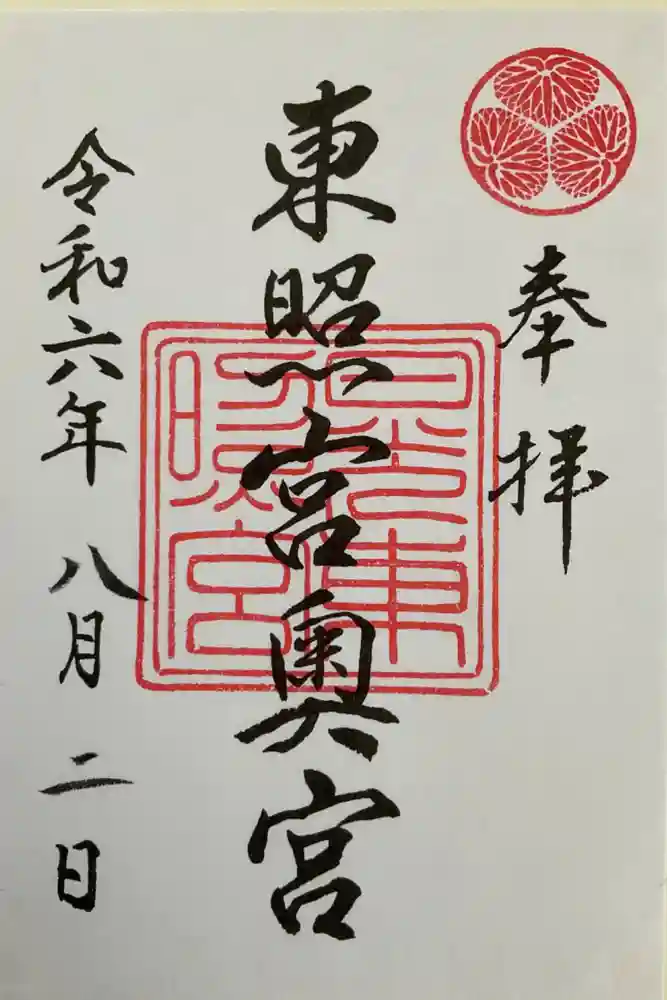 奉拝
東照宮奥宮
日光東
照宮
令和六年八月二日